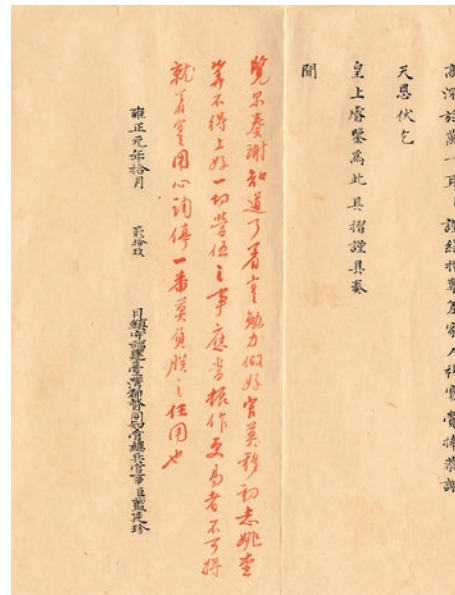 高深於萬一耳謹繕摺專差家人賫捧恭謝
天恩伏乞
皇上睿鑒爲此具摺謹具奏
聞
覽卿奏謝知道了著實勉力做好官莫移初志姚堂
算不得上好一切營伍之事應當振作更易者不可將
就著實用心調停一番莫負朕之任用也
雍正元年拾月 貳拾玖 日鎮守福建臺灣副將同知管總兵官事臣藍廷珍